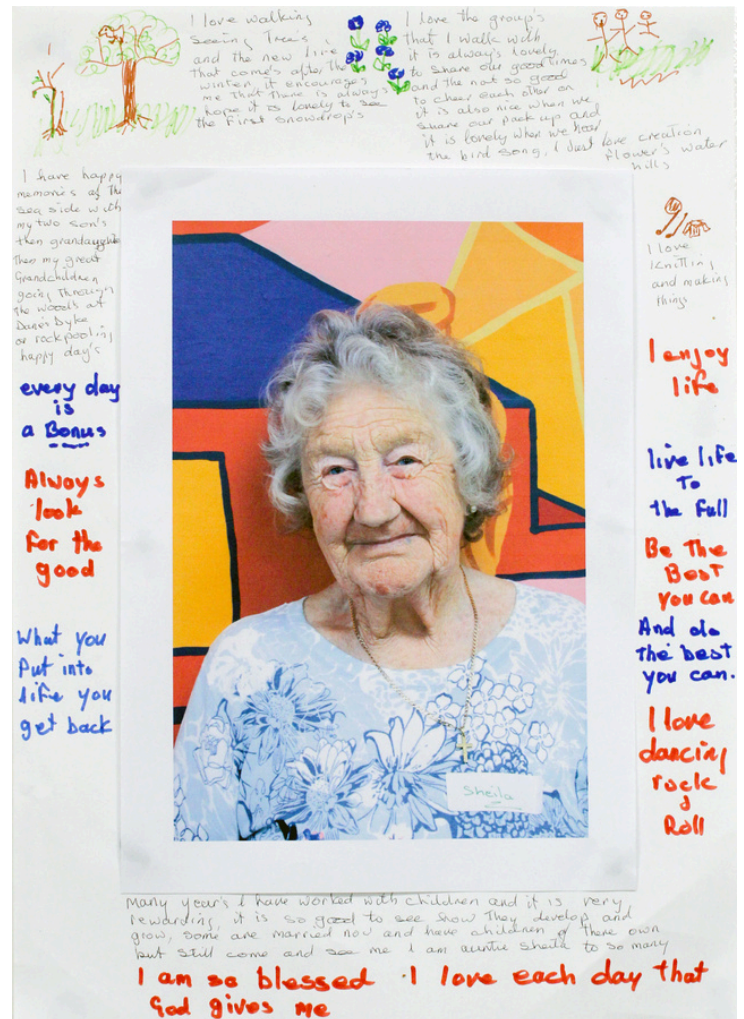 I love walking
seeing Tree's,
and the new live
that come's after the
winter, it encourages
me that There is always
hope it is lovely to see
the first snowdrop's
I love the group's
that I walk with
it is always lovely
to share our good times
and the not so good
to cheer each other on
it is also nice when we
share our pack up and
it is lovely when we hear
the bird song, I Just love creation
flower's water
hills
I have happy
memories of The
sea side with
my two son's
then grandaughter
Then my great
Grandchildren
going Through
the wood's at
Danes Dyke
or rockpooling
happy day's
every day
is
a Bonus
Always
look
for the
good
What you
Put into
life you
get back
I love
Knitting
and making
things
I enjoy
life
live life
To
the full
Be The
Best
you can
And do
the best
you can.
I love
dancing
rock
&
Roll
Sheila
Many year's I have worked with children and it is very
rewarding, it is so good to see how They develop and
grow, some are married now and have children of there own
but still come and see me I am auntie Sheila to so many
I am so blessed . I love each day that
God gives me